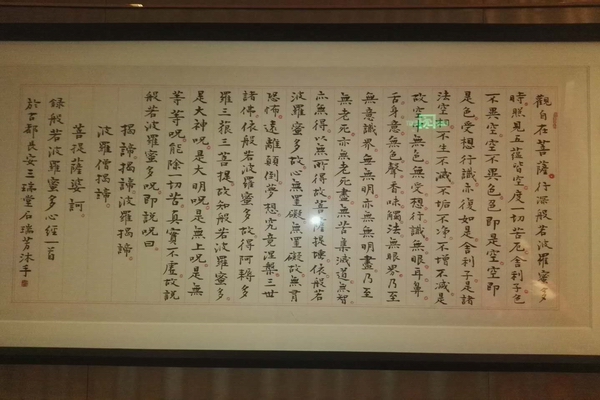 觀自在菩薩行深般若波羅蜜多
時照見五蘊皆空度一切苦厄舍利子色
不異空空不異色色即是空空即
是色受想行識亦復如是舍利子是諸
法空相不生不滅不垢不淨不增不減是
故空無色無受想行識無眼耳鼻
舌身意無色聲香味觸法無眼界乃至
無意識界無無明亦無無明盡乃至
無老死亦無老死盡無苦集滅道無智
亦無得以無所得故菩提薩埵依般若
波羅蜜多故心無罣礙無罣礙故無有
恐怖遠離顛倒夢想究竟涅槃三世
諸佛依般若波羅蜜多故得阿耨多
羅三藐三菩提故知般若波羅蜜多
是大神呪是大明呪是無上呪是無
等等呪能除一切苦真實不虛故說
般若波羅蜜多呪即說呪曰
揭諦揭諦波羅揭諦
波羅僧揭諦
菩提薩婆訶
錄般若波羅蜜多心經一首
於古都長安三瑞堂石瑞芳沐手